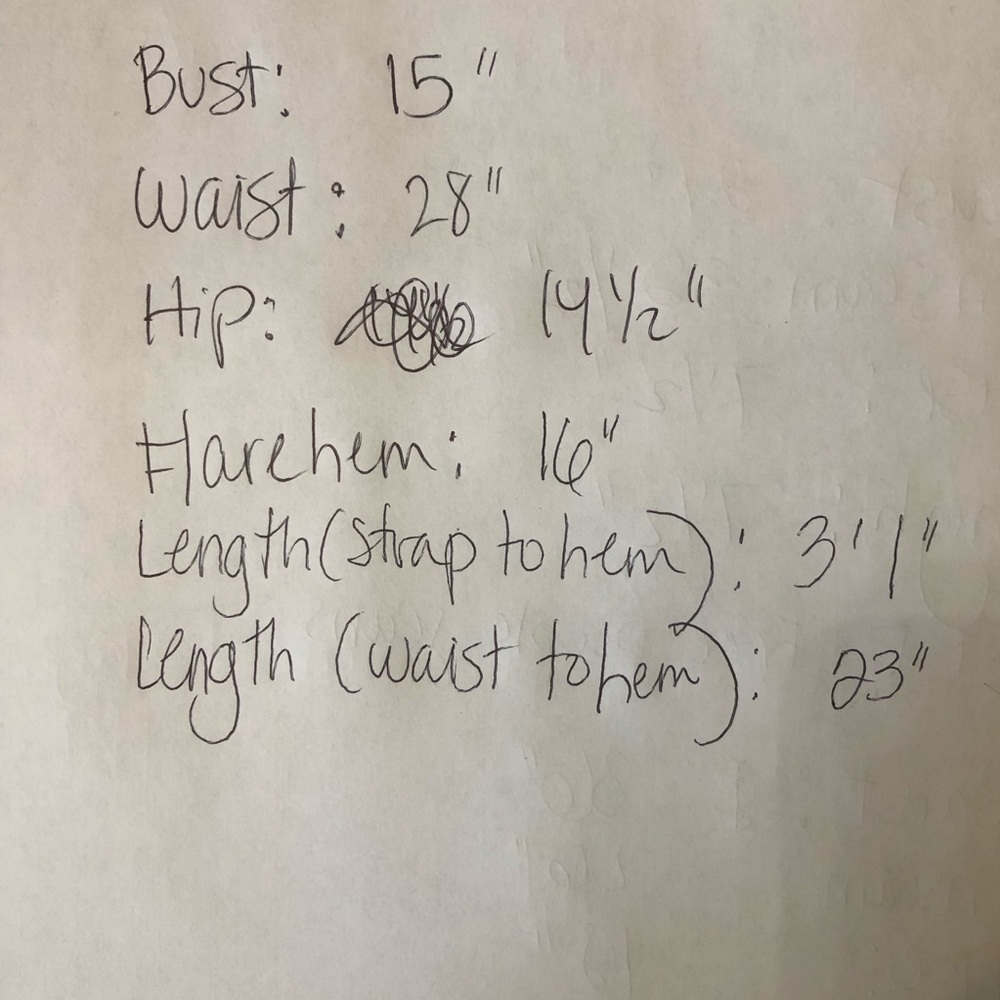 Bust: 15"
Waist: 28"
Hip: 14 1/2"
Flarehem: 16"
Length (strap to hem): 3' 1"
Length (waist to hem): 23"